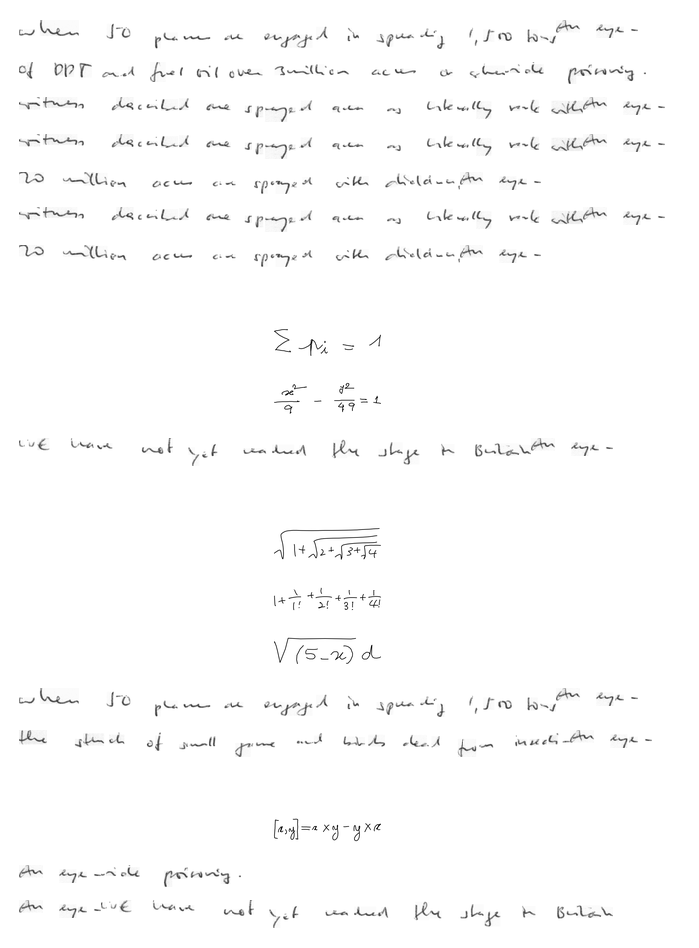 when 50 planes are engaged in spreading 1,500 tons An eye-
of DDT and fuel oil over 3 million acres a -wide poisoning.
witness described one sprayed area as literally with An eye-
witness described one sprayed area as literally with An eye-
20 million acres are sprayed with dieldrin, An eye-
witness described one sprayed area as literally with An eye-
20 million acres are sprayed with dieldrin, An eye-
∑ p_i = 1
x²/9 - y²/49 = 1
WE have not yet reached the stage in Britain An eye-
√(1+√(2+√(3+√4)))
1+1/1!+1/2!+1/3!+1/4!
√(5-x) d
when 50 planes are engaged in spreading 1,500 tons An eye-
the stench of small game and birds dead from insecti- An eye-
[x,y]=x×y-y×x
An eye -cide poisoning.
An eye -WE have not yet reached the stage in Britain